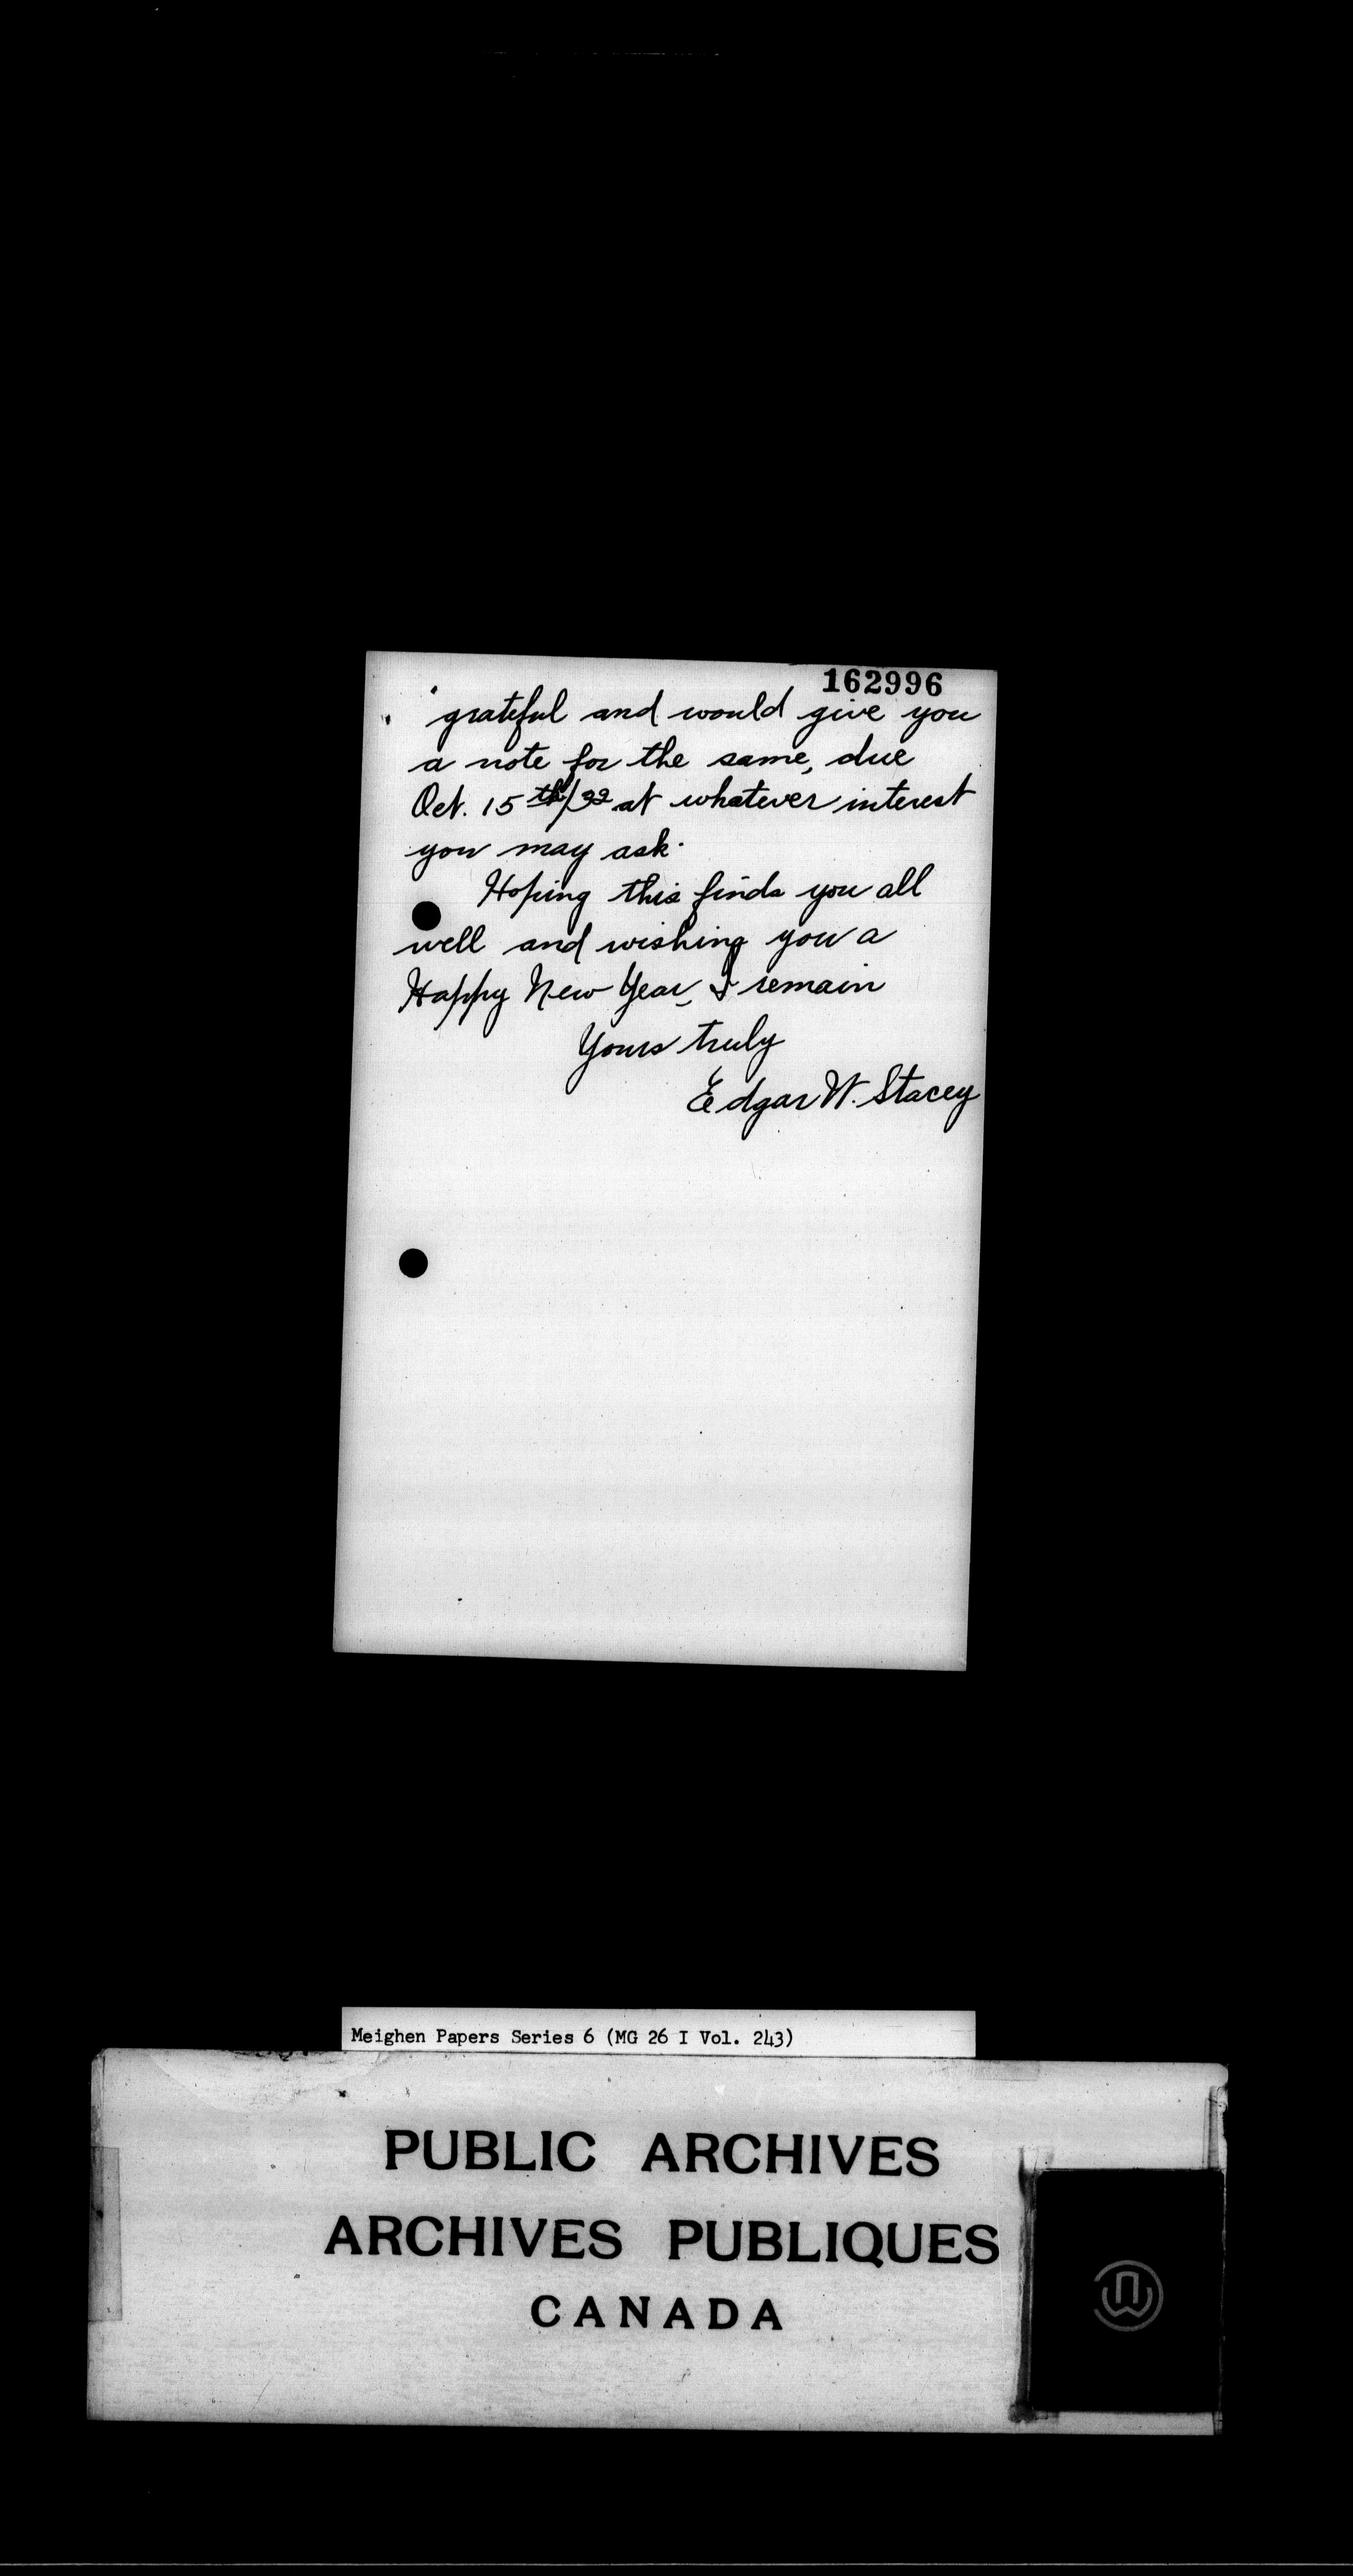 162996
grateful and would give you
a note for the same, due
Oct. 15th/32 at whatever interest
you may ask.
Hoping this finds you all
well and wishing you a
Happy New Year, I remain
Yours truly
Edgar W. Stacey
Meighen Papers Series 6 (MG 26 I Vol. 243)
PUBLIC ARCHIVES
ARCHIVES PUBLIQUES
CANADA